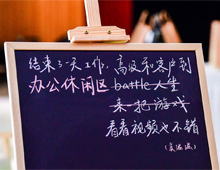 结束了一天工作，高级和客户到
办公休闲区 battle人生
来一把游戏
看看视频也不错